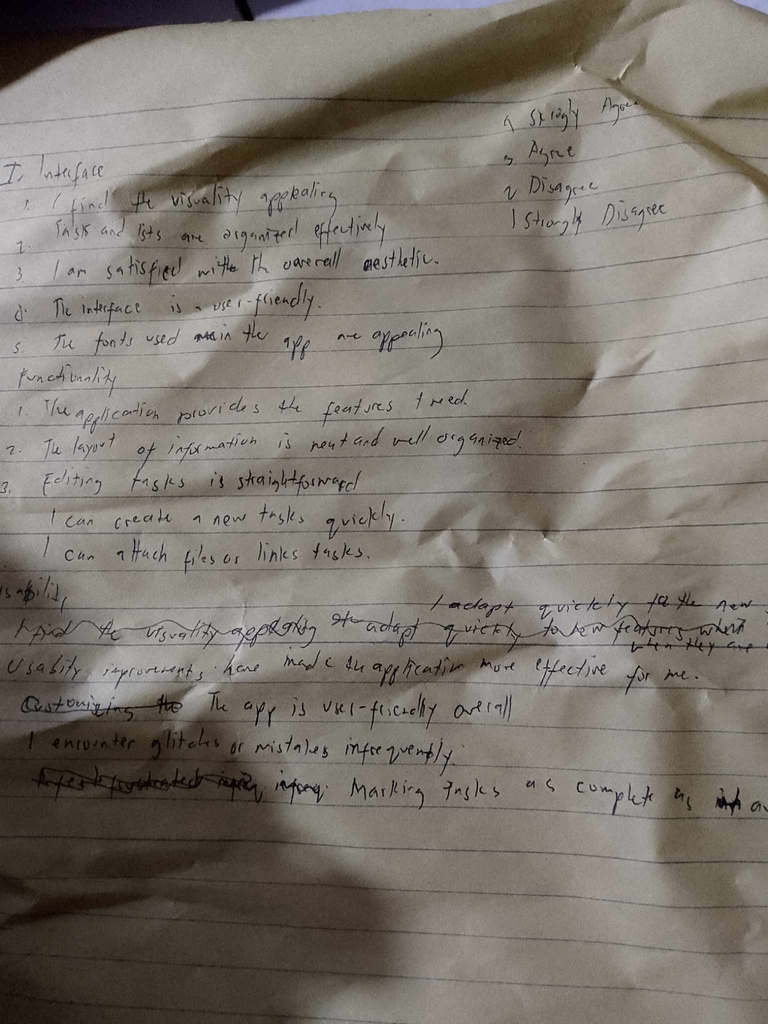 4 Strogly Agree
3 Agree
2 Disagree
1 Strongly Disagree
I. Interface
1. I find the visuality appealing
2. Tasks and lsts are organized effectively
3. I am satisfied with the overall aesthetic.
4. The interface is user-friendly.
5. The fonts used in the app are appealing
Functionality
1. The application provides the features I need.
2. The layout of information is neat and well organized.
3. Editing tasks is straightforward
I can create a new tasks quickly.
I can attach files or links tasks.
sability
I adapt quickly to the new
I find the visuality appealing adapt quickly to new features when
when they are
Usability improvements have made the application more effective for me.
Customizing the The app is user-friendly overall
I encounter glitches or mistakes infrequently.
Marking tasks as complete as